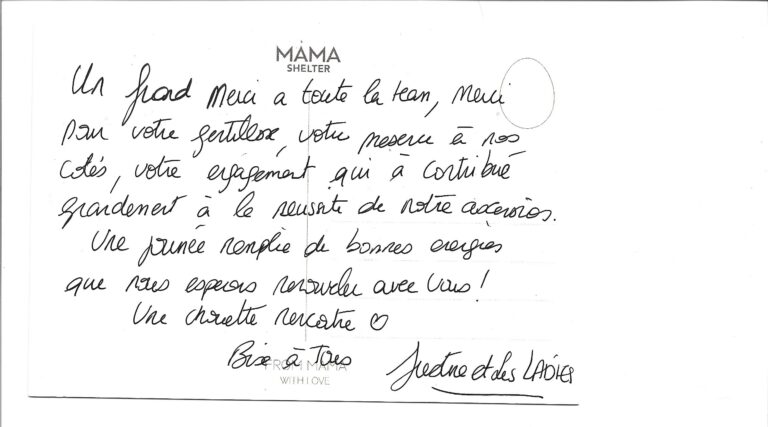 MAMA
SHELTER
Un grand Merci a toute la team, Merci
pour votre gentillesse, votre présence à nos
cotés, votre engagement qui à contribué
grandement à la reussite de notre
Une journée remplie de bonnes energies
que nous esperons renouveler avec vous !
Une chouette rencontre ♡
Bise à Tous
FROM MAMA
WITH LOVE
Justine et des LADIES